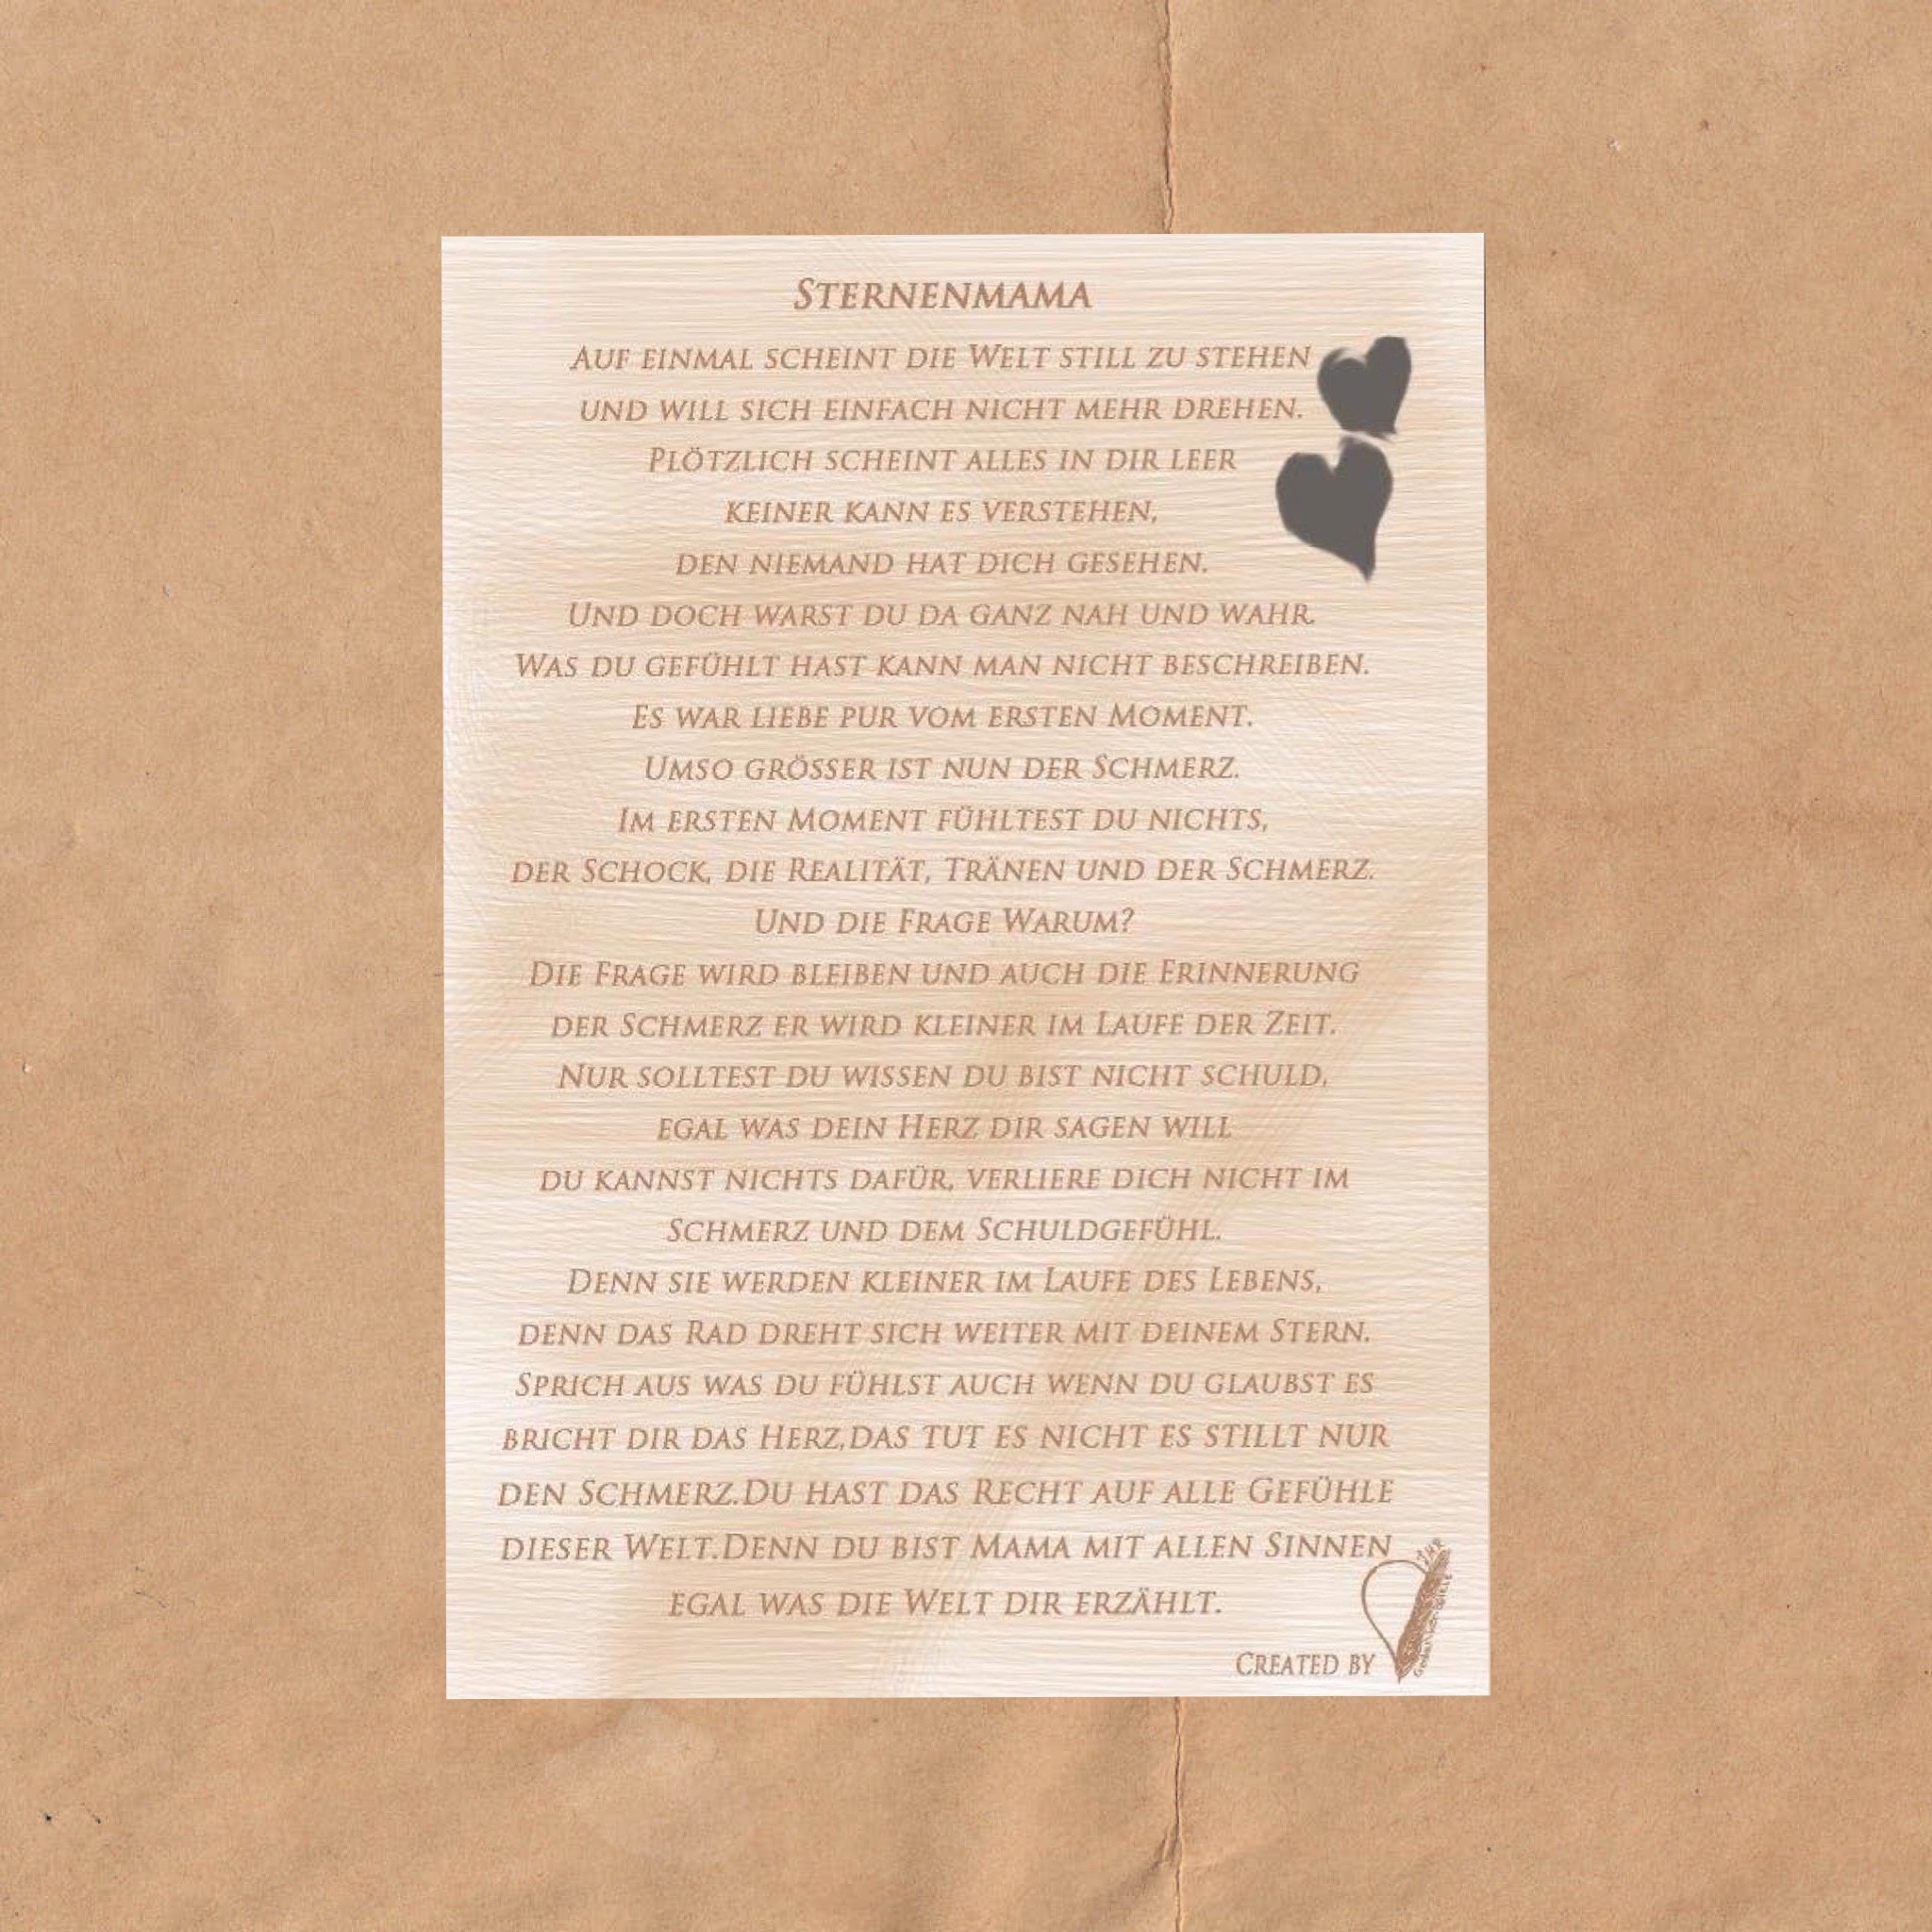 Sternenmama
Auf einmal scheint die Welt still zu stehen
und will sich einfach nicht mehr drehen.
Plötzlich scheint alles in dir leer
keiner kann es verstehen,
den niemand hat dich gesehen.
Und doch warst du da ganz nah und wahr.
Was du gefühlt hast kann man nicht beschreiben.
Es war liebe pur vom ersten Moment.
Umso grösser ist nun der Schmerz.
Im ersten Moment fühltest du nichts,
der Schock, die Realität, Tränen und der Schmerz.
Und die Frage Warum?
Die Frage wird bleiben und auch die Erinnerung
der Schmerz er wird kleiner im Laufe der Zeit.
Nur solltest du wissen du bist nicht schuld,
egal was dein Herz dir sagen will
du kannst nichts dafür, verliere dich nicht im
Schmerz und dem Schuldgefühl.
Denn sie werden kleiner im Laufe des Lebens,
denn das Rad dreht sich weiter mit deinem Stern.
Sprich aus was du fühlst auch wenn du glaubst es
bricht dir das Herz,das tut es nicht es stillt nur
den Schmerz.Du hast das Recht auf alle Gefühle
dieser Welt.Denn du bist Mama mit allen Sinnen
egal was die Welt dir erzählt.
Created by